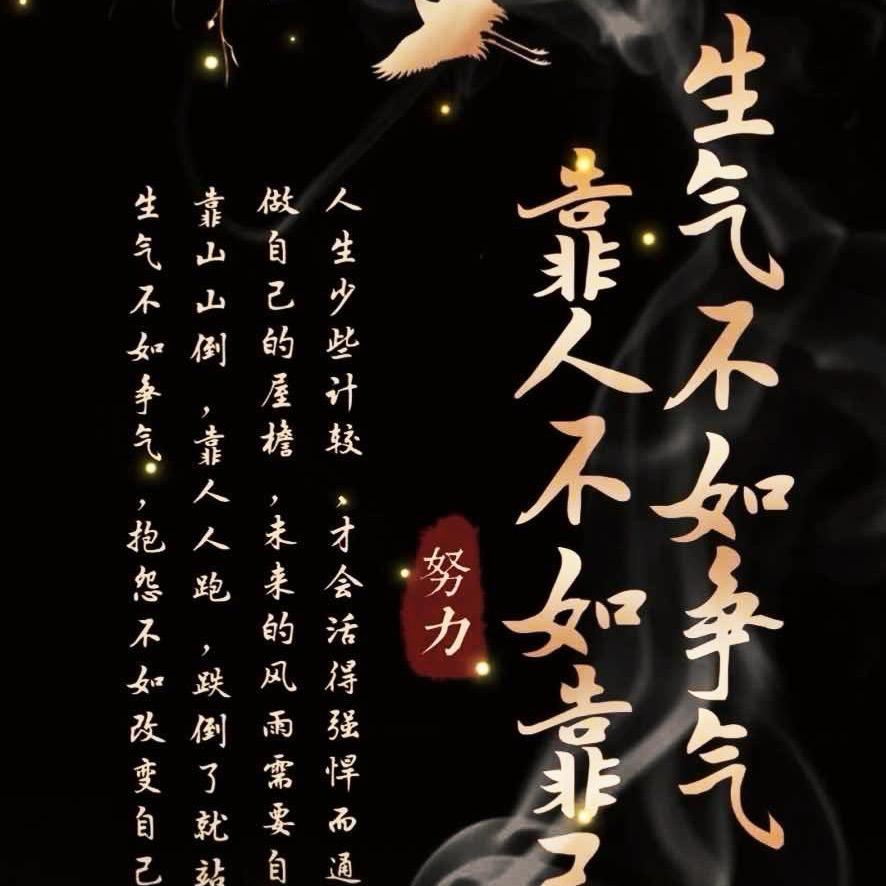 生气不如争气
靠人不如靠己
努力
人生少些计较,才会活得强悍而通
做自己的屋檐,未来的风雨需要自
靠山山倒,靠人人跑,跌倒了就站
生气不如争气,抱怨不如改变自己